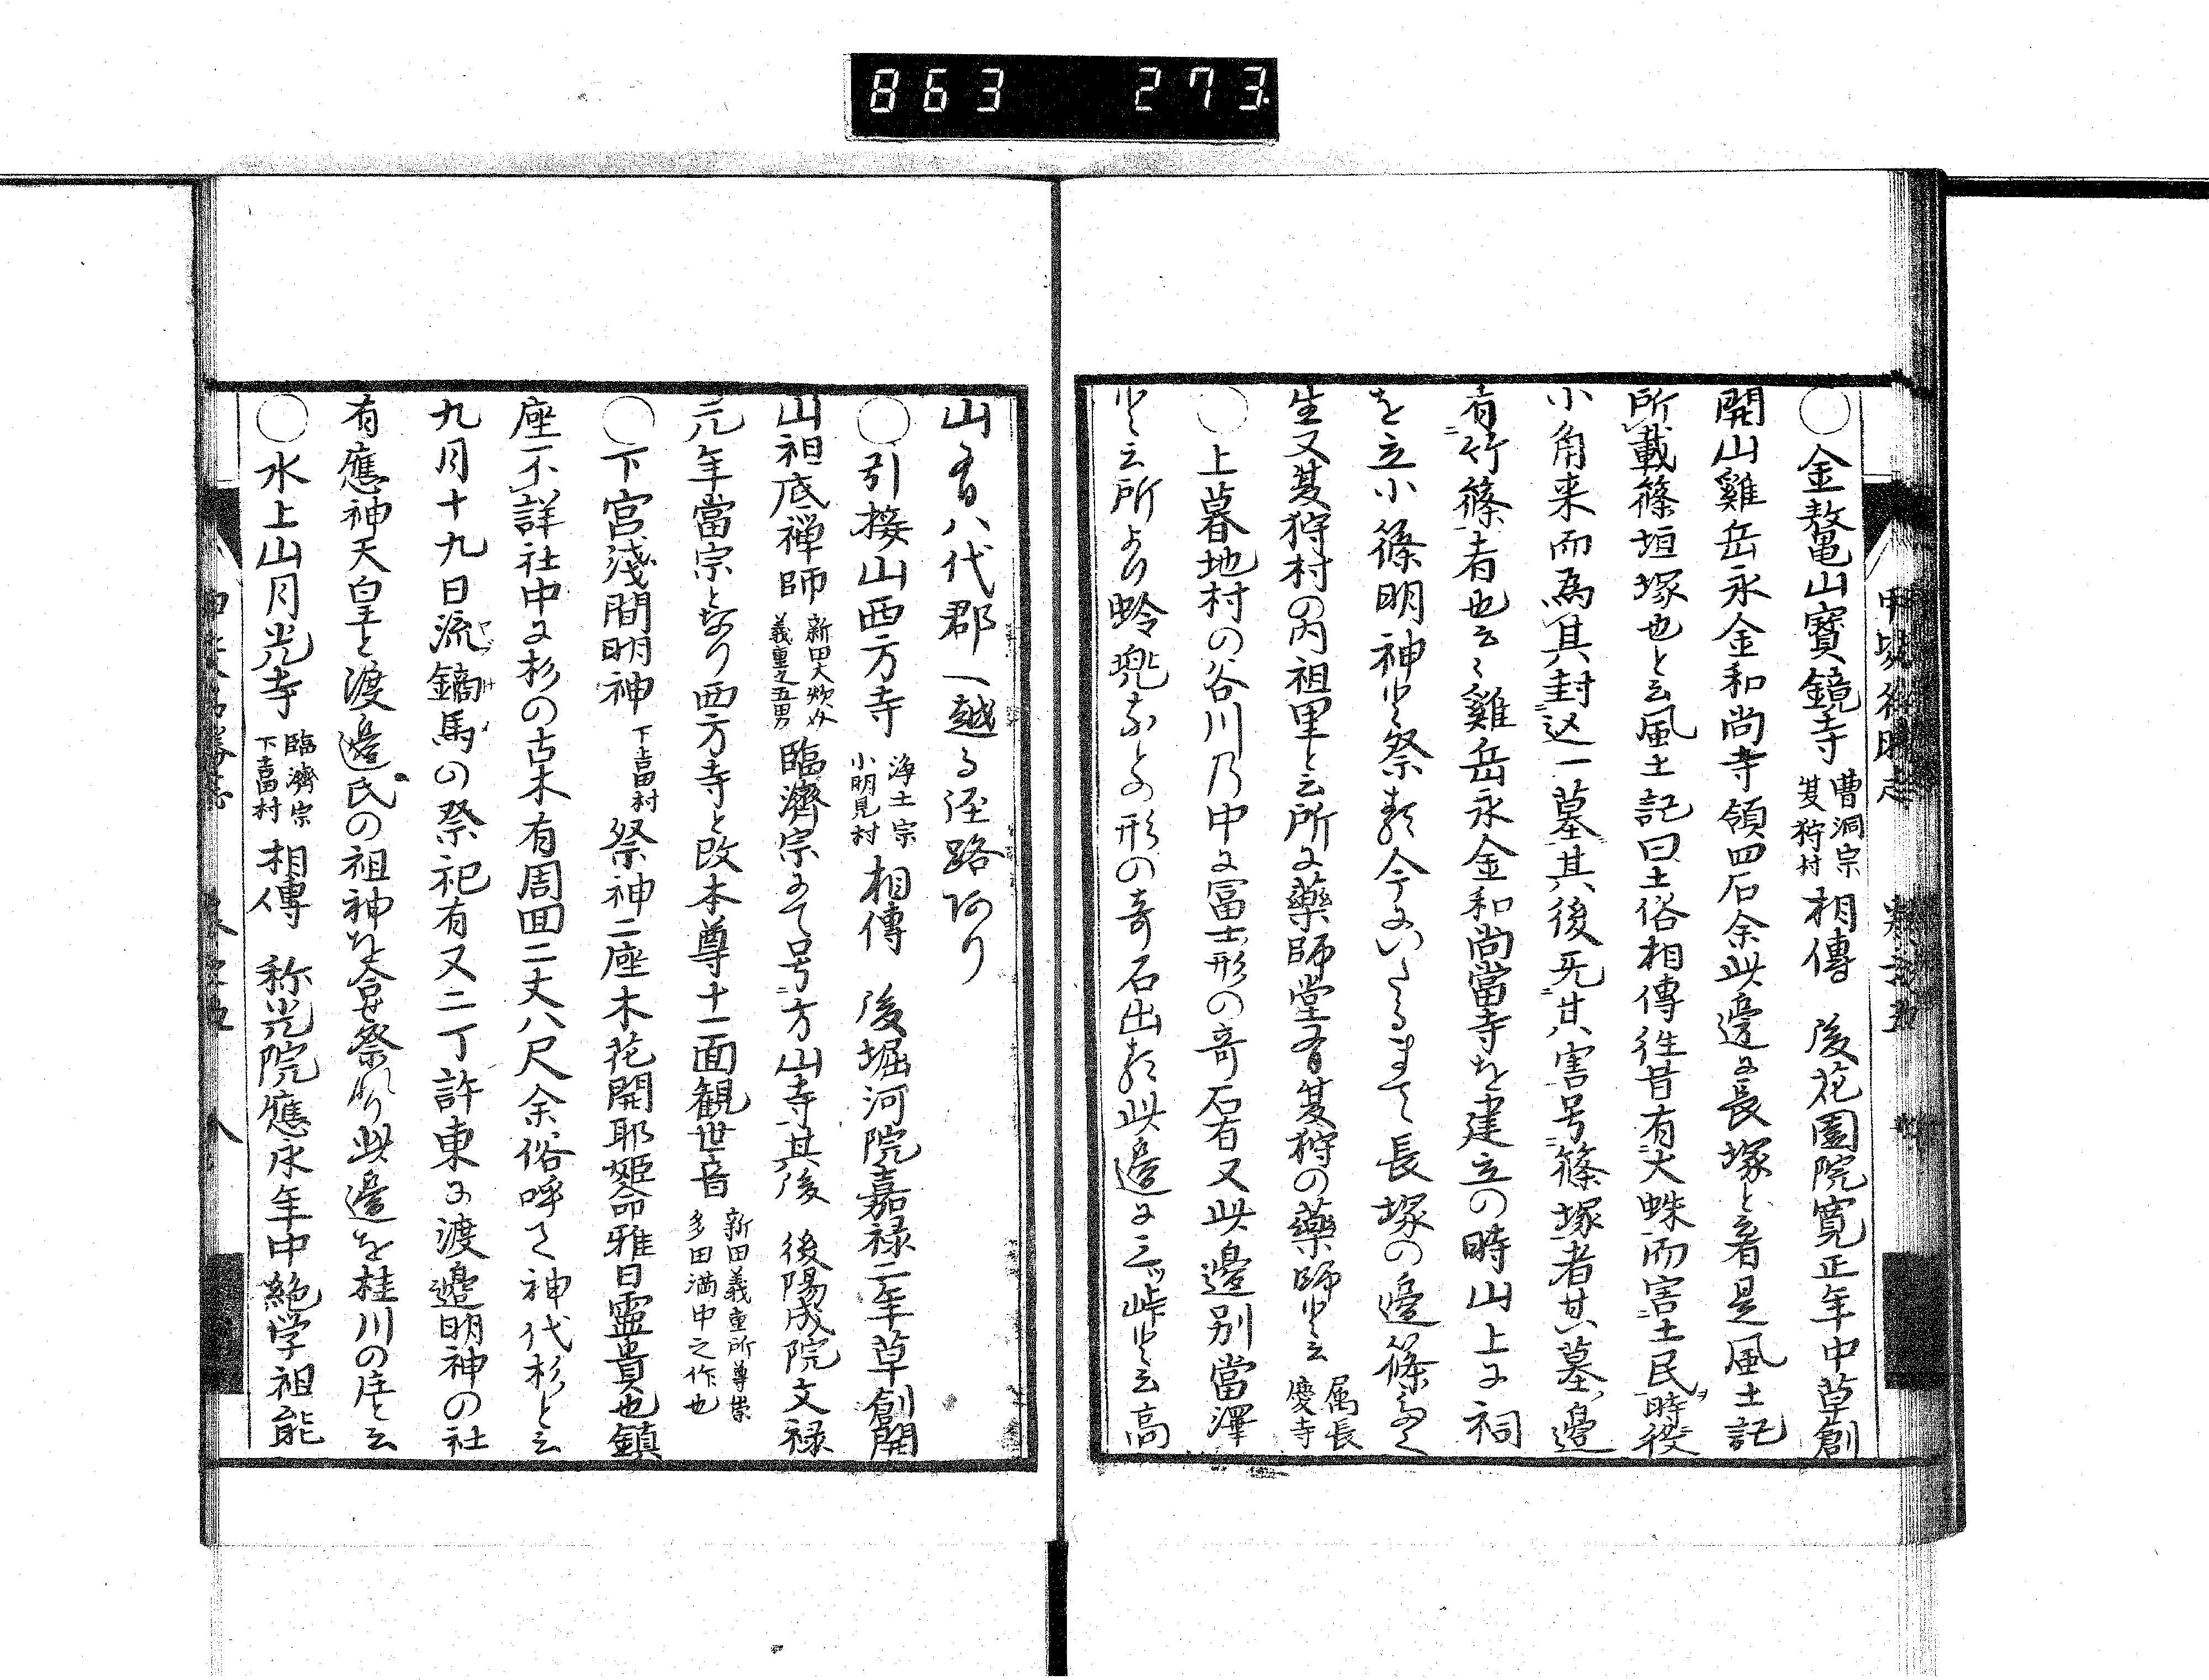 863 273
〇金鼇山寳鏡寺 曹洞宗 夏狩村 相傳 後花園院寛正年中草創
開山雞岳永金和尚寺領四石余此邉に長塚と云者是風土記
所載篠垣塚也と云風土記曰土俗相傳徃昔有大蛛而害土民時役
小角来而為其封込一墓其後旡其害号篠塚者其墓邉
有竹篠者也云々雞岳永金和尚當寺を建立の時山上に祠
を立小篠明神と祭る今にいたるまて長塚の邉篠多く
生又夏狩村の内祖里と云所に藥師堂有夏狩の藥師と云 属長慶寺
〇上暮地村の谷川乃中に冨士形の竒石又此邉別當澤
と云所より蛉兜なとの形の竒石出る此邉に三ッ峠と云高
山有八代郡へ越る径路あり
〇引接山西方寺 浄土宗 小明見村 相傳 後堀河院嘉禄二年草創開
山祖底禅師 新田大炊介 義重之五男 臨濟宗にて号方山寺其後 後陽成院文禄
元年當宗となり西方寺と改本尊十一面観世音 新田義重所尊崇 多田満中之作也
〇下宮淺間明神 下吉田村 祭神二座木花開耶姫命雅日靈貴也鎮
座不詳社中に杉の古木有周囬二丈八尺余俗呼て神代杉と云
九月十九日流鏑馬の祭祀有又二丁許東に渡邉明神の社
有應神天皇と渡邉氏の祖神を合せ祭れり此邉を桂川の庄と云
〇水上山月光寺 臨濟宗 下吉田村 相傳 称光院應永年中絶学祖能